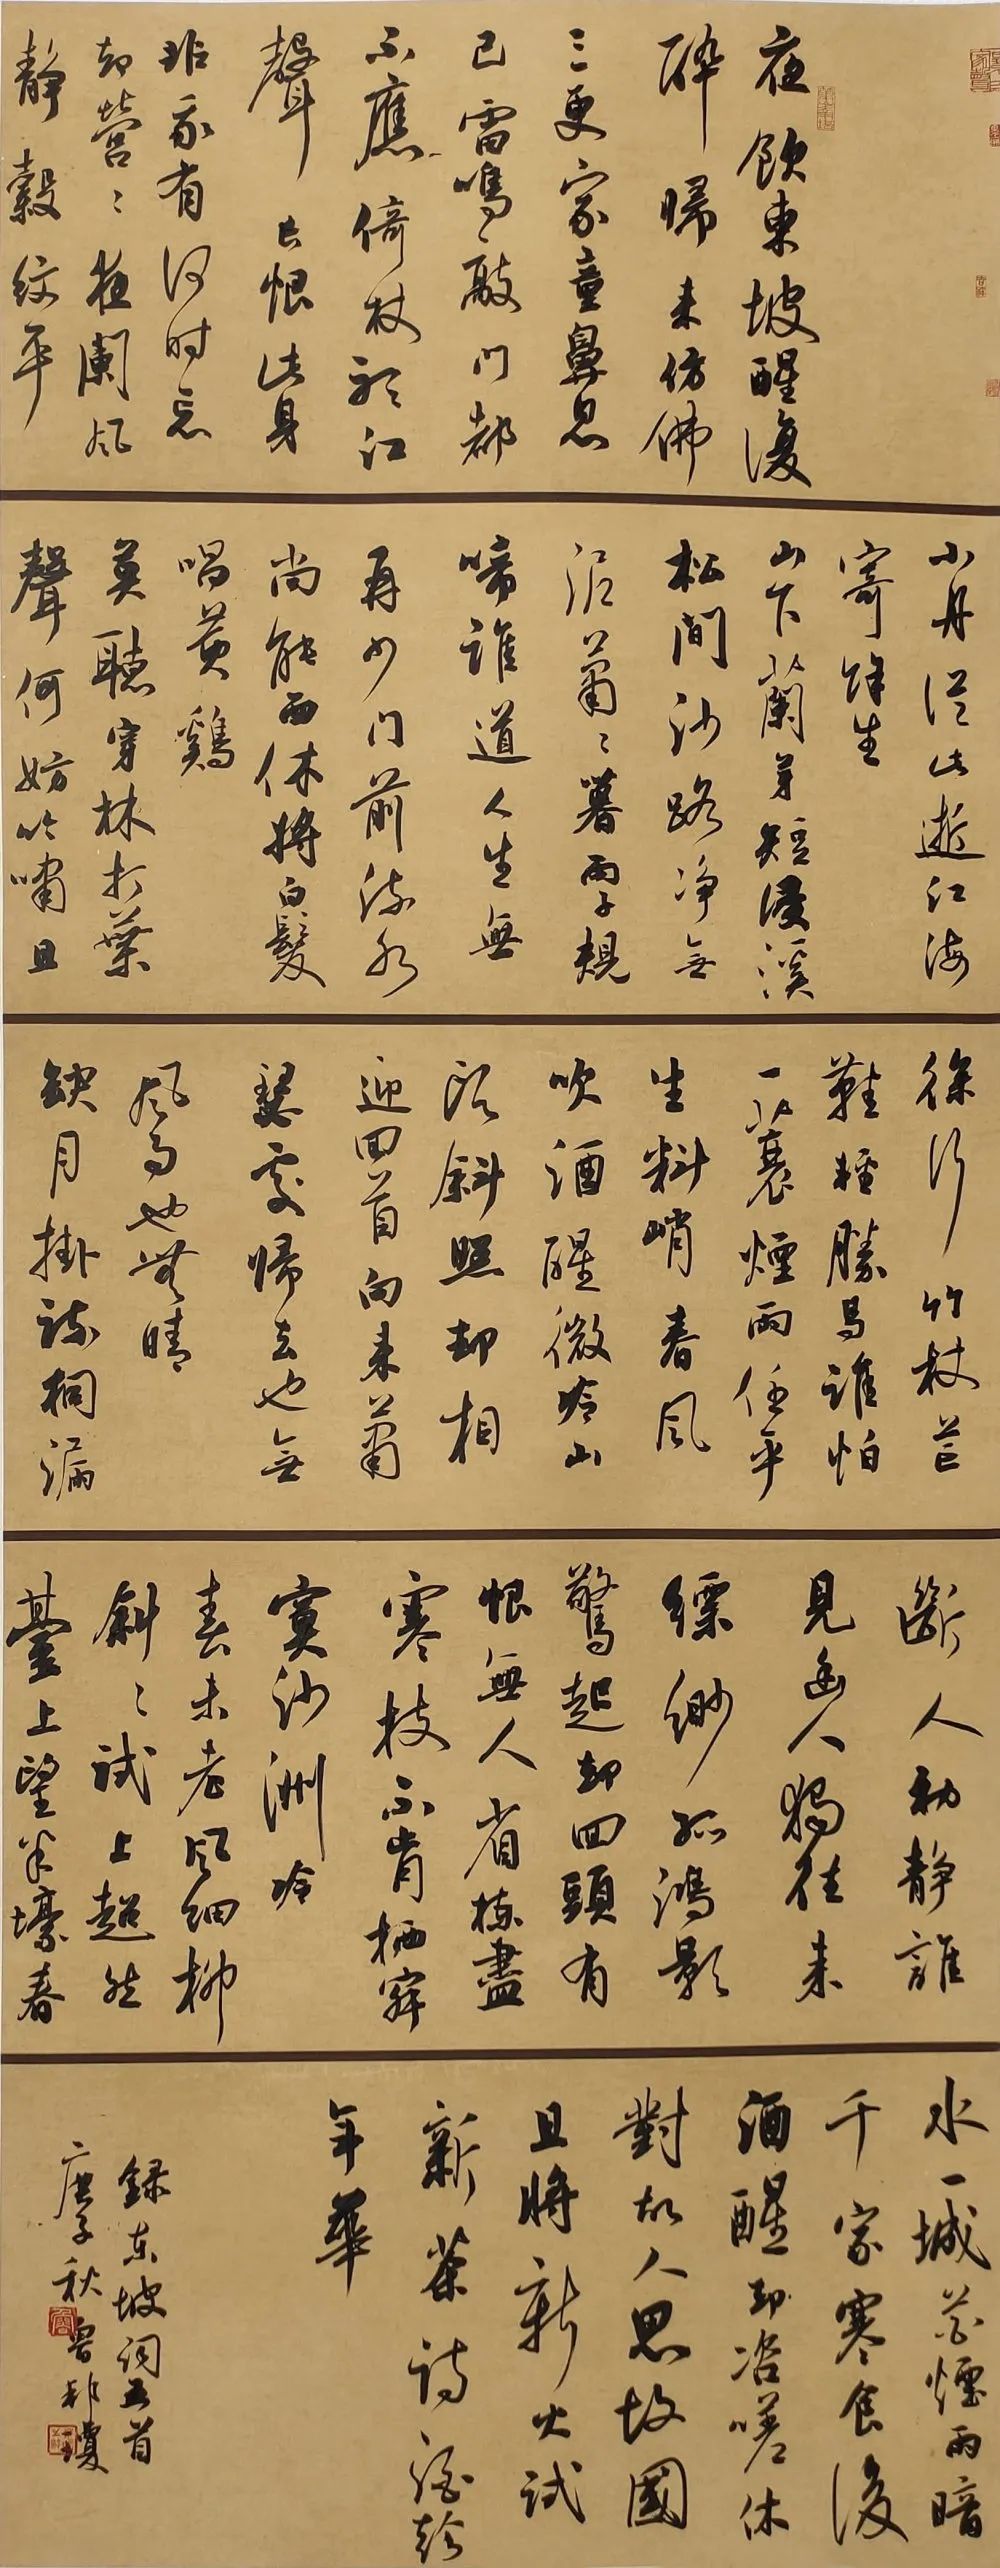 夜飲東坡醒復
醉歸来仿佛
三更家童鼻息
已雷鳴敲門都
不應倚杖聽江
聲長恨此身
非我有何时忘
却營〻夜闌風
静縠紋平
小舟從此逝江海
寄餘生
山下蘭芽短浸溪
松間沙路净無
泥蕭〻暮雨子規
啼誰道人生無
再少門前流水
尚能西休將白髮
唱黄鷄
莫聽穿林打葉
聲何妨吟嘯且
徐行竹杖芒
鞋輕勝馬誰怕
一蓑煙雨任平
生料峭春風
吹酒醒微冷山
頭斜照却相
迎回首向来蕭
瑟處歸去也無
風雨也無晴
缺月掛疏桐漏
斷人初静誰
見幽人獨往来
縹緲孤鴻影
驚起却回頭有
恨無人省揀盡
寒枝不肯栖寂
寞沙洲冷
春未老風細柳
斜〻試上超然
臺上望半壕春
水一城花煙雨暗
千家寒食後
酒醒却咨嗟休
對故人思故國
且將新火試
新茶詩酒趁
年華
錄東坡詞五首
庚子秋